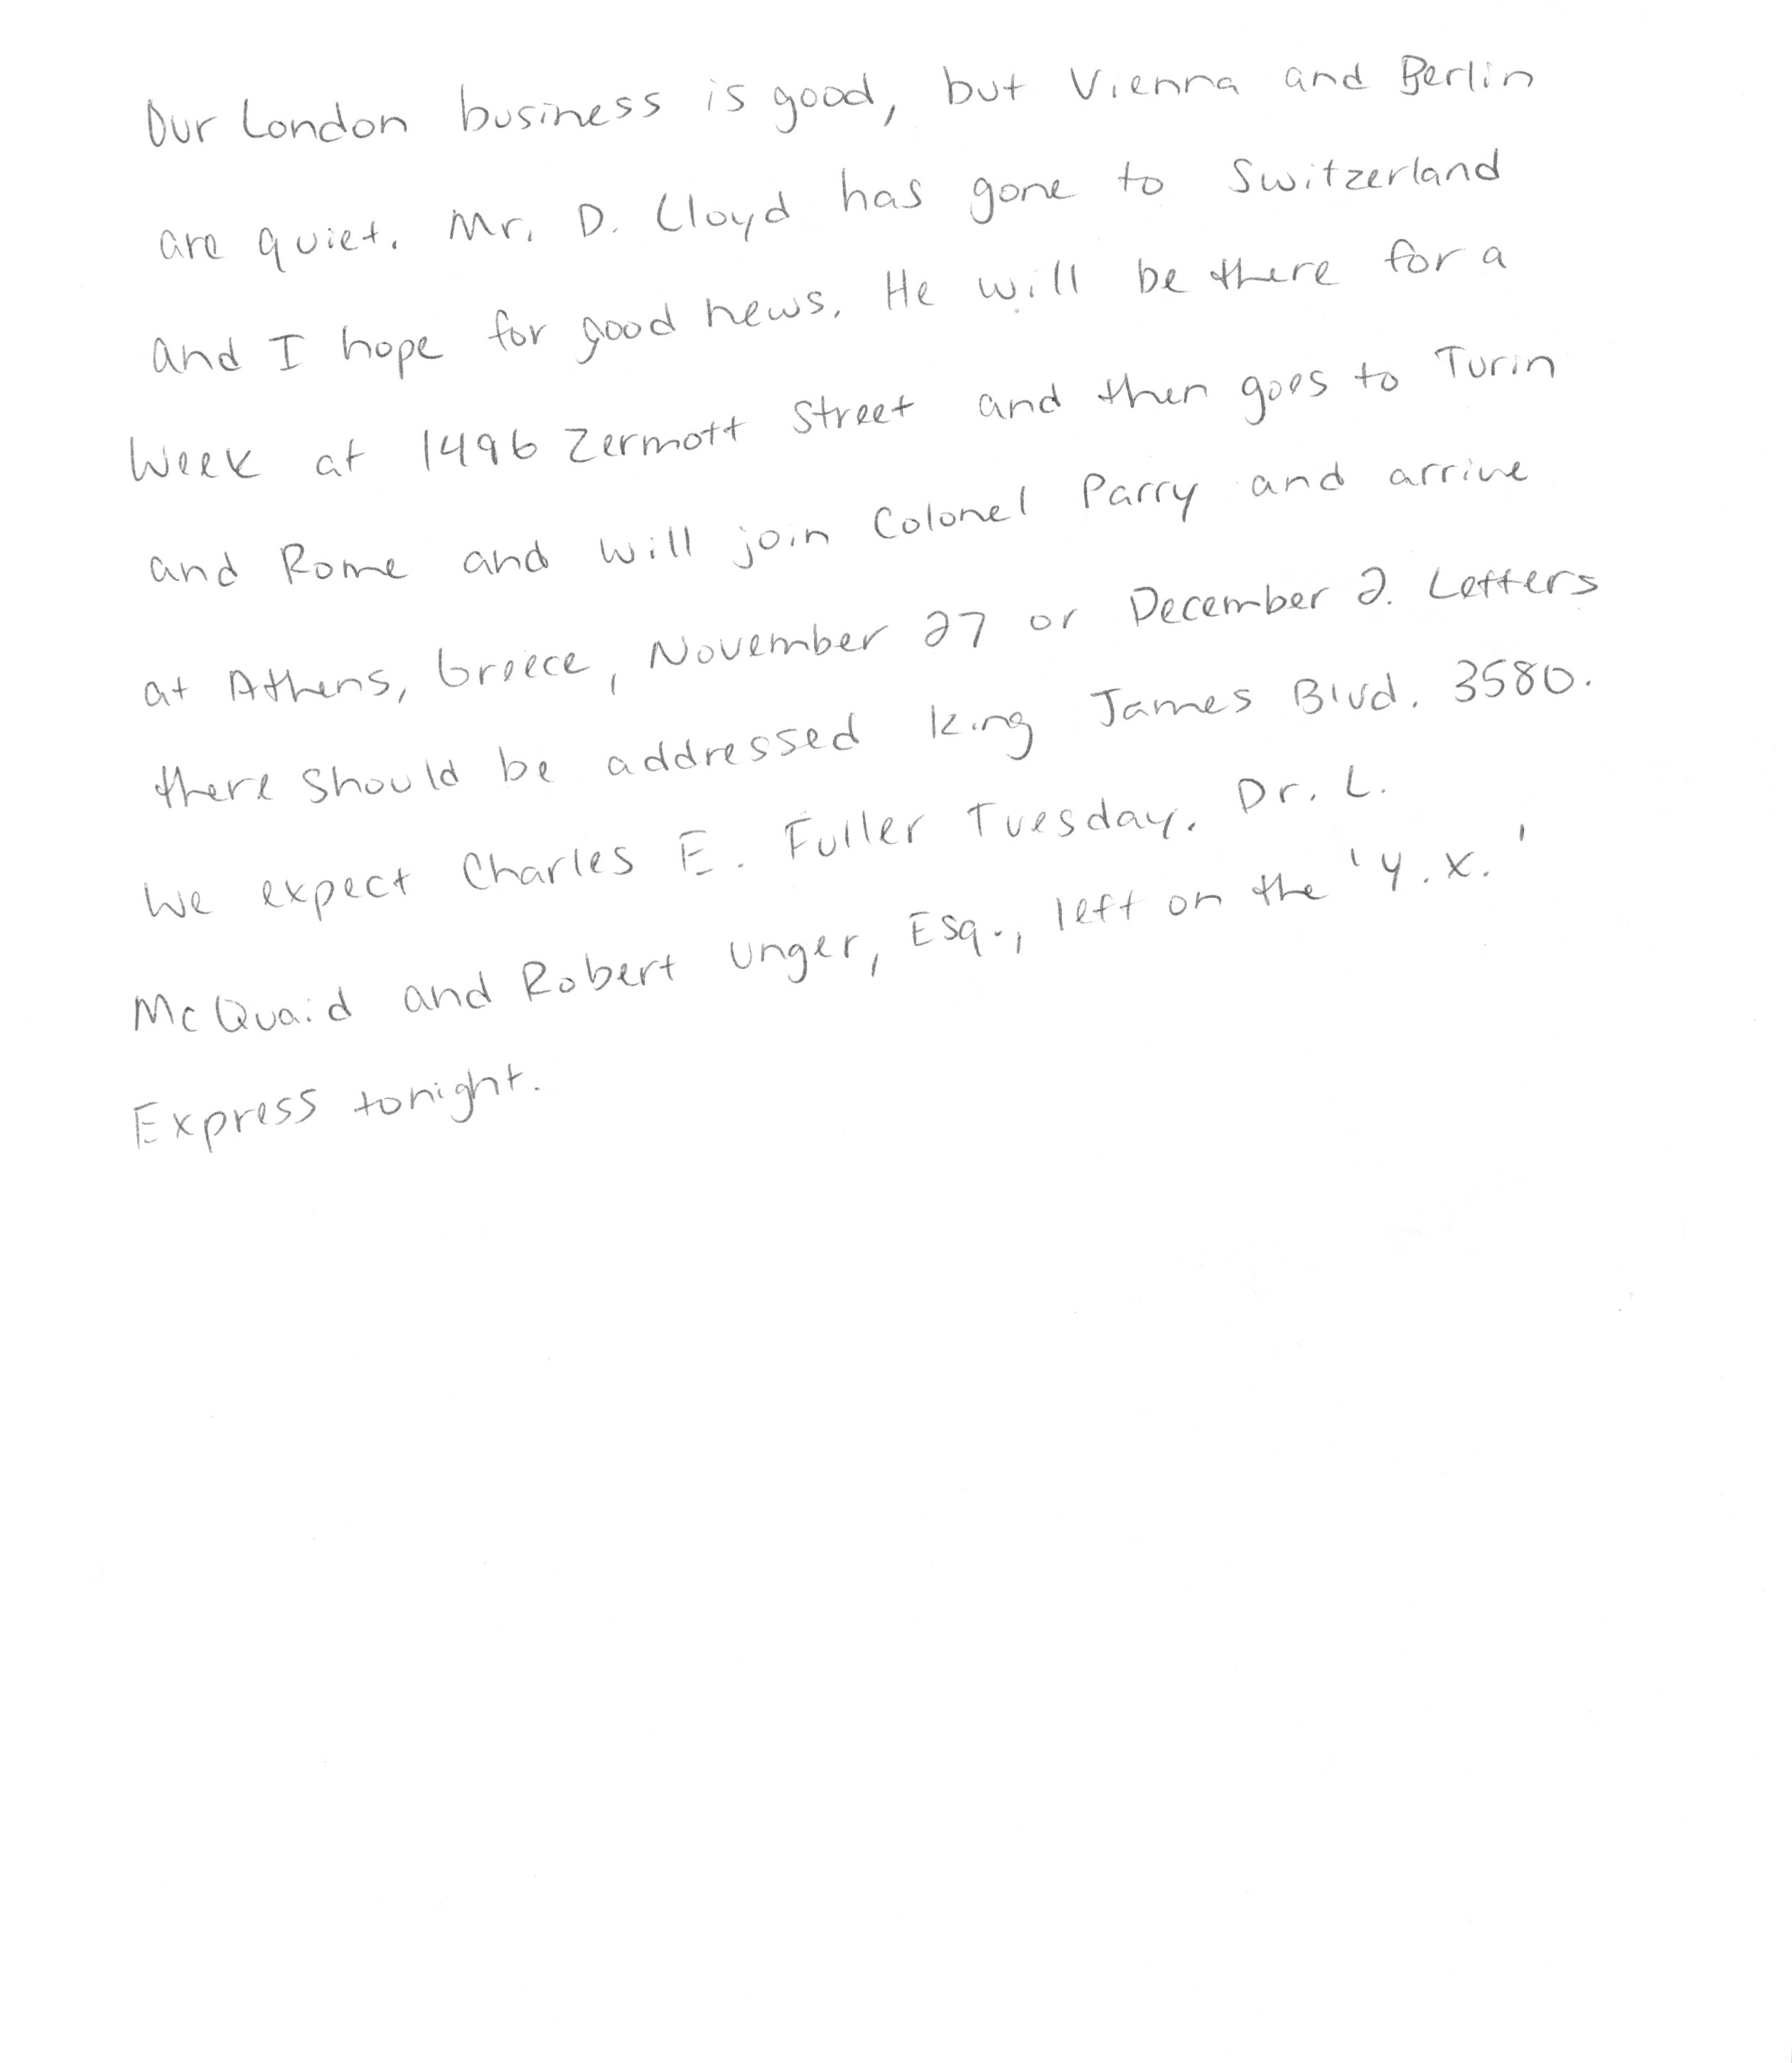 Our London business is good, but Vienna and Berlin
are quiet. Mr. D. Lloyd has gone to Switzerland
and I hope for good news. He will be there for a
week at 1496 Zermott Street and then goes to Turin
and Rome and will join Colonel Parry and arrive
at Athens, Greece, November 27 or December 2. Letters
there should be addressed King James Blvd. 3580.
We expect Charles E. Fuller Tuesday. Dr. L.
McQuaid and Robert Unger, Esq., left on the 'Y.X.'
Express tonight.